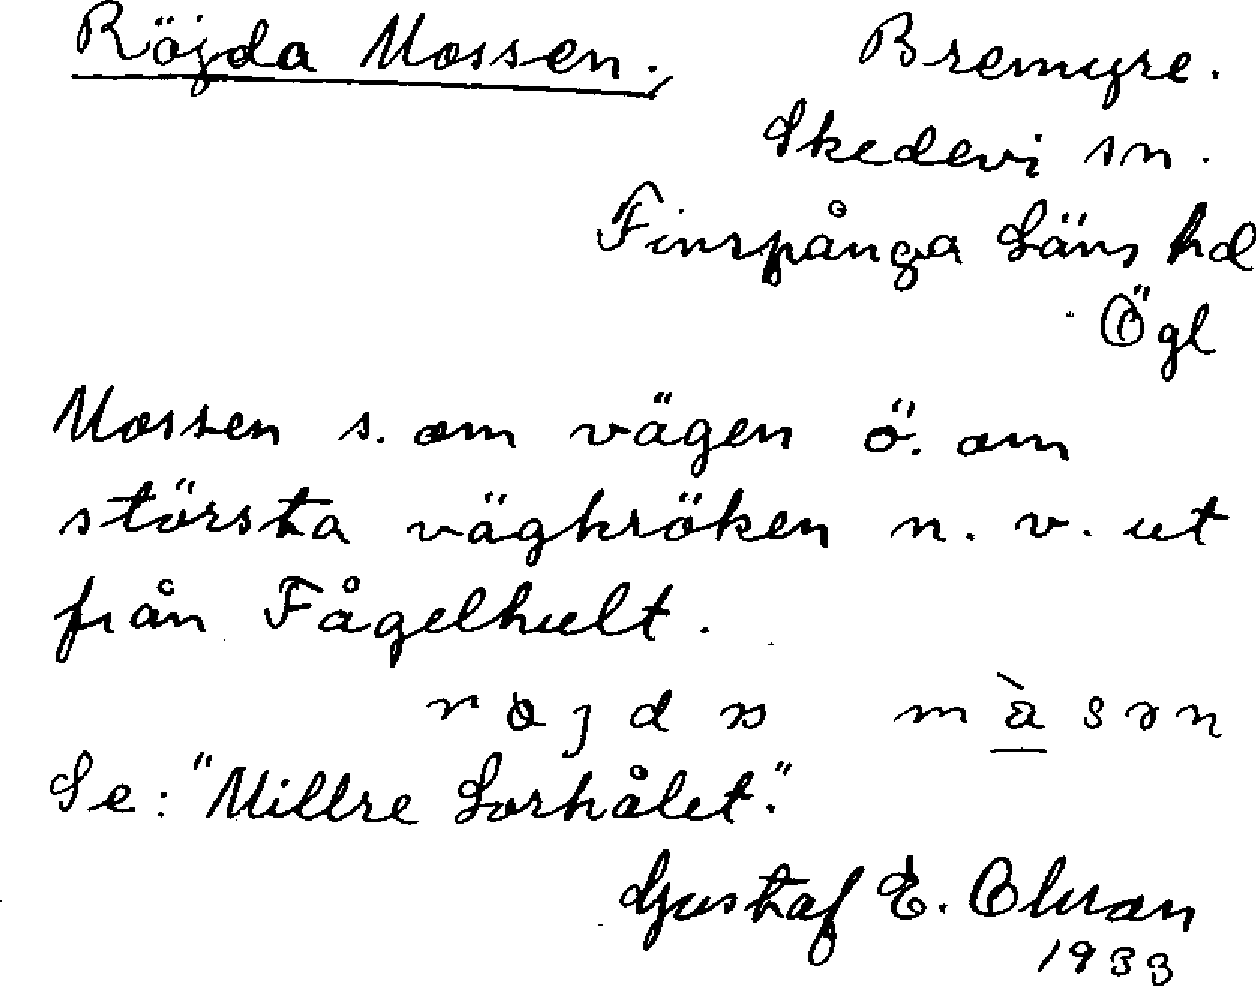 Röjda Mossen. Bremyre.
Skedevi sn.
Finspånga Läns hd
Ögl
Mossen s. om vägen ö. om
största vägkröken n. v. ut
från Fågelhult.
Se: "Millre Lorhålet."
Gustaf E. Olsson
1933